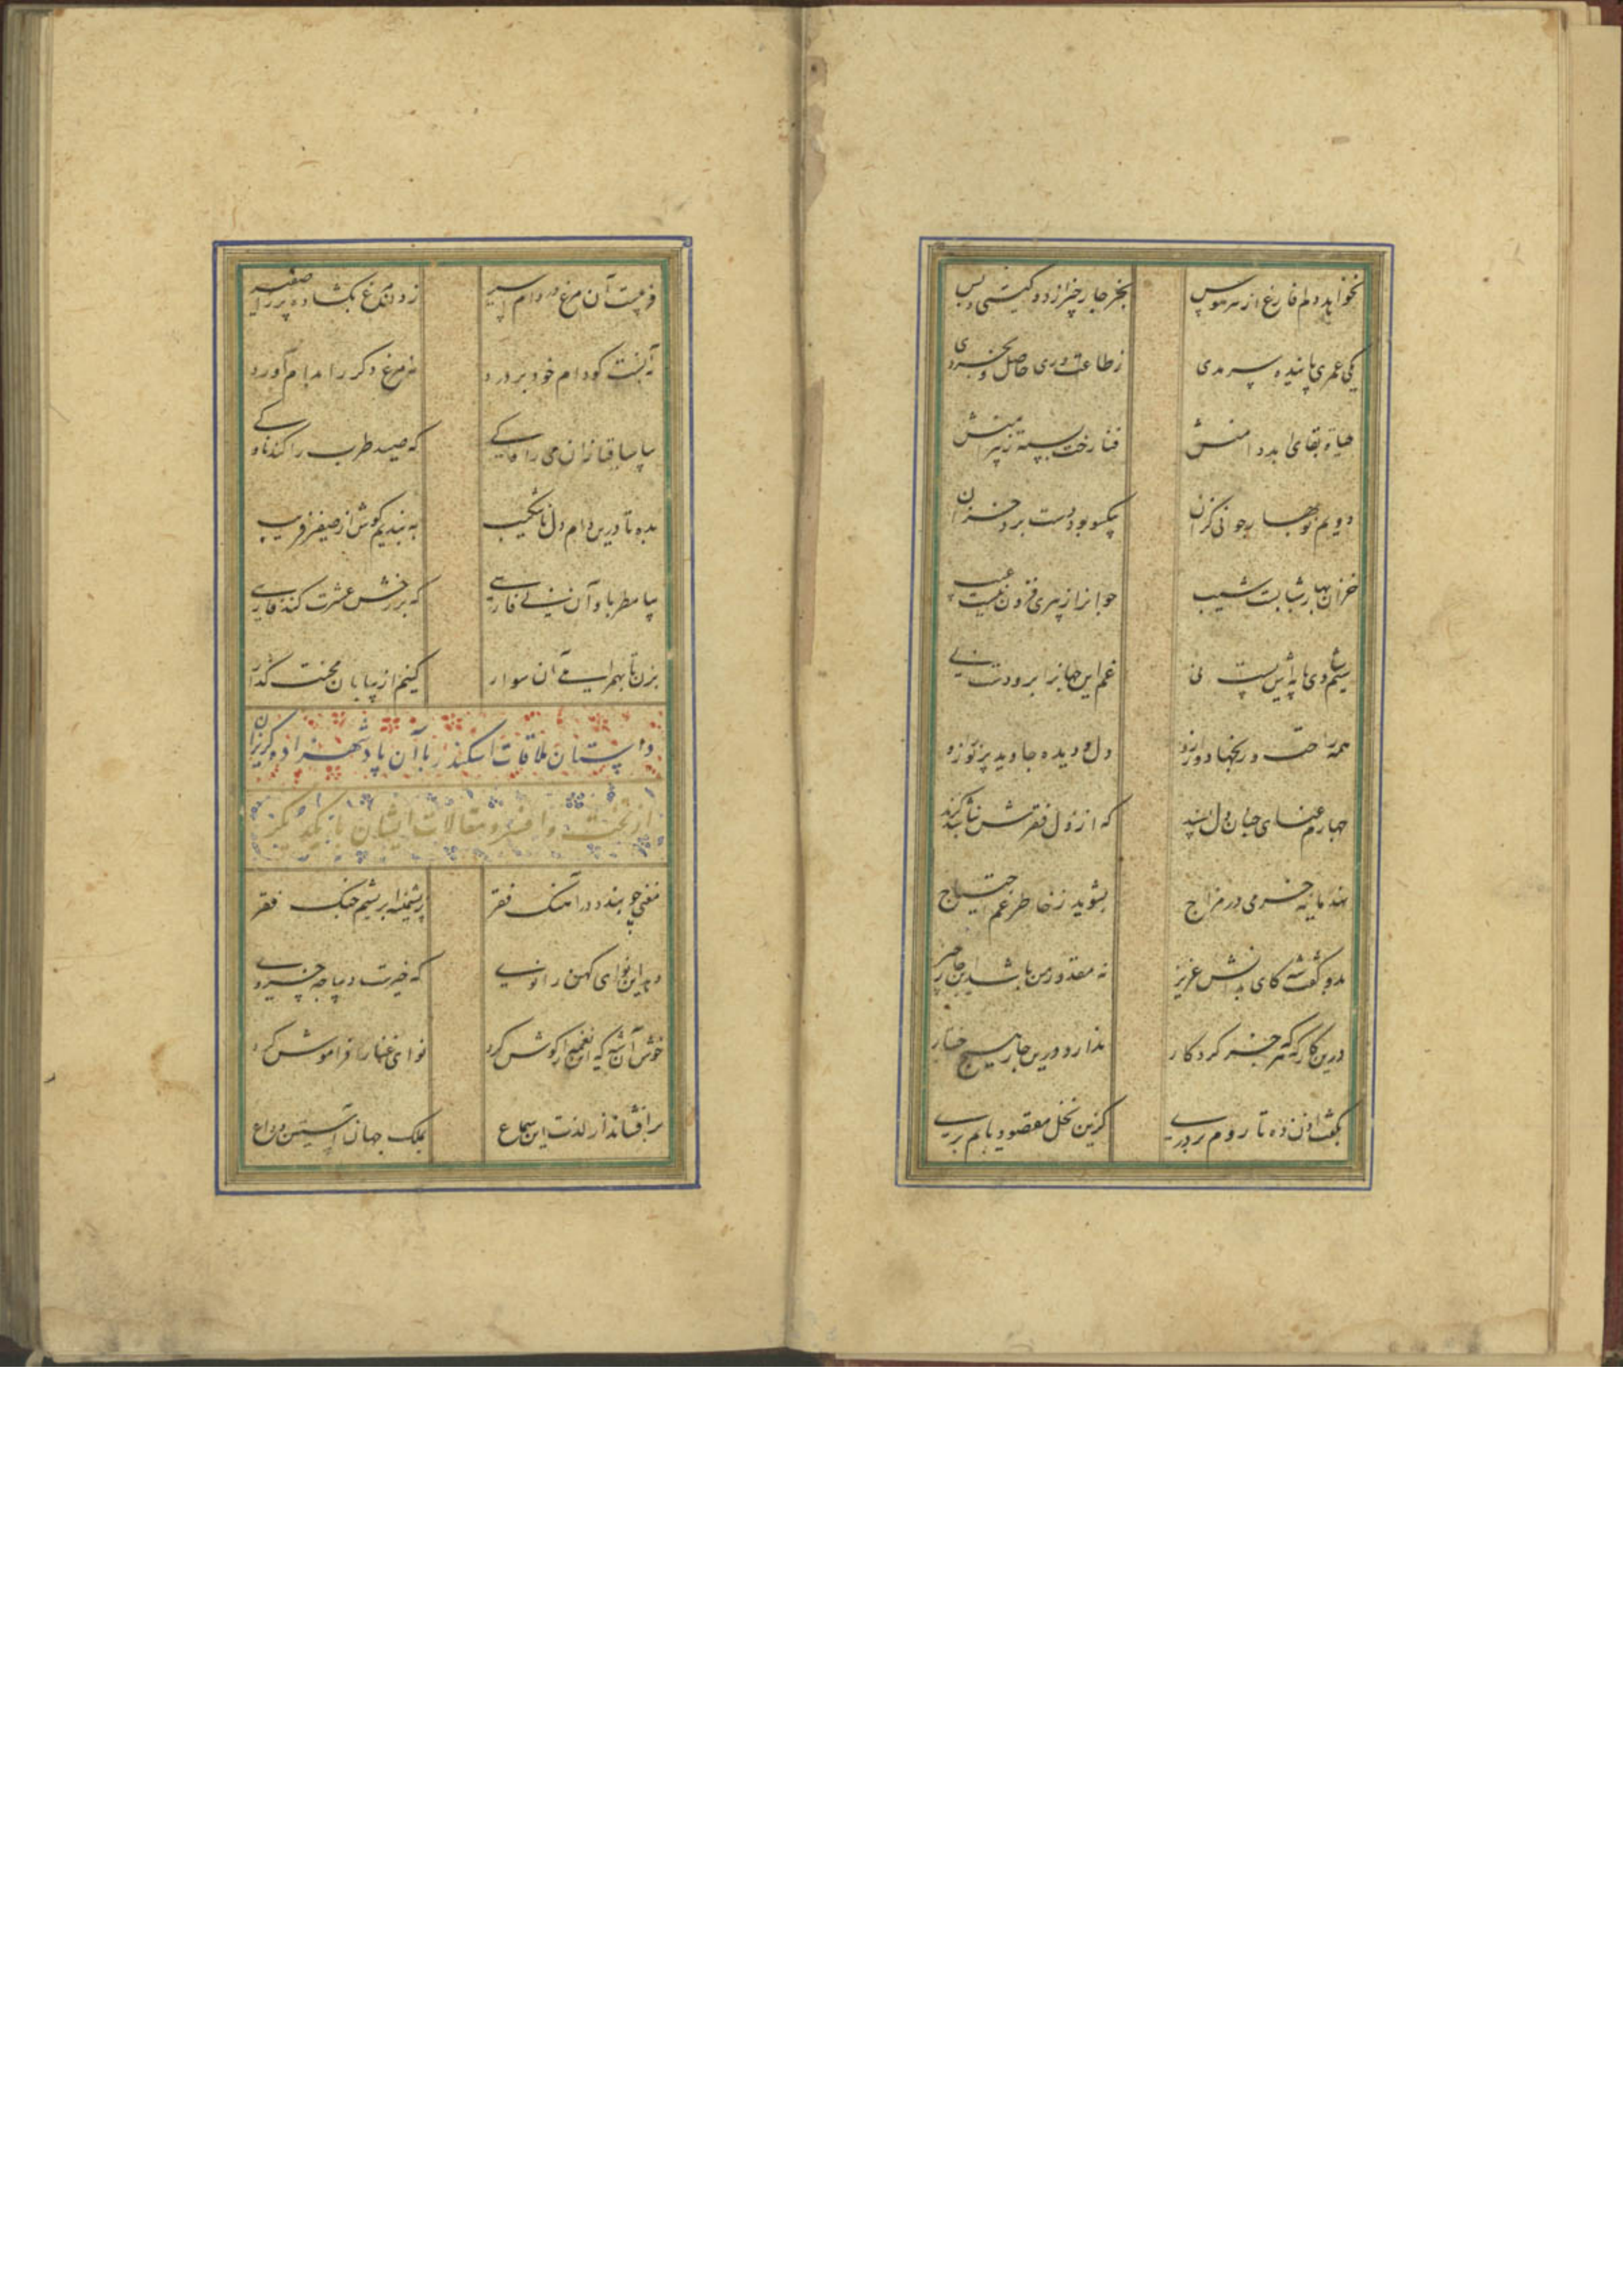 نخواهد دلم فارغ از هر هوس
بجز چار چیز از دو گیتی و بس
یکی عمری پاینده سرمدی
ز طاعت وری حاصل و بخردی
حیاة بقای ابد دامنش
فنا رخت بسته ز پیرامنش
دویم نوبهار جوانی کزان
یکسو بود دست برد خزان
خزان بهار شبابت شیب
جوانرا ز پیری فزون نیست عیب
سیم شادی‌ها به آتش نی
غم این جهانرا برو دست نی
همه راحت و رنجها دور ازو
دل و دیده جاوید پر نور ازو
چهارم غنای جهان دل پسند
که از ذل فقرش نباشد گزند
نهد مایه خرمی در مزاج
بشوید ز خاطر غم احتیاج
بدو گفت شه کای بدانش عزیز
نه مقدور من باشد این چار چیز
درین کارگه هر که جز کردگار
ندارد درین چار هیچ اختیار
بگفت اذن ده تا روم بر دری
کزین نخل مقصود یابم بری
فریبست آن مرغ در دام اسیر
زدن مرغ بگشاده پر را صفیر
نه آنست کو دام خود بر درد
نه مرغ دگر را بدام آورد
بیا ساقیا زان می راوکی
که صید طرب را کند ناوکی
بده تا درین دام دل ناشکیب
به بندیم گوش از صفیر فریب
بیا مطربا و آن نی فارسی
که بر رخش عشرت کند فارسی
بزن تا بهمراهی آن سوار
کنیم از بیابان محنت گذار
داستان ملاقات اسکندر با آن پادشهزاده گریزان
از تخت و افسر و مقالات ایشان با یکدیگر
مغنی چو بندد در آهنگ فقر
بریشمینه ابریشم چنگ فقر
دهد این نوای کهن را نوی
که خیرت دیباجه خسروی
خوش آن شه که این نغمه را گوش کرد
نوای غنا را فراموش کرد
برافشاند از لذت این سماع
بملک جهان آستین وداع